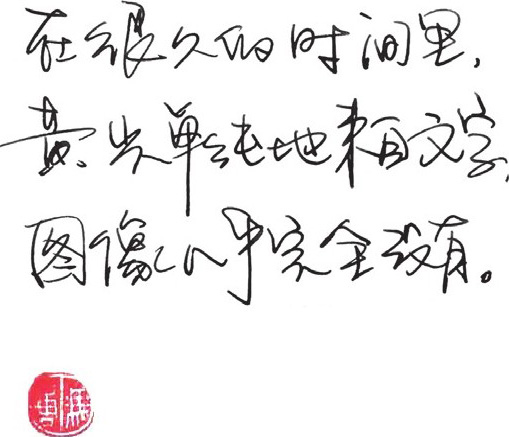 在很久的时间里，
黄只单纯地来自文字，
图像几乎完全没有。